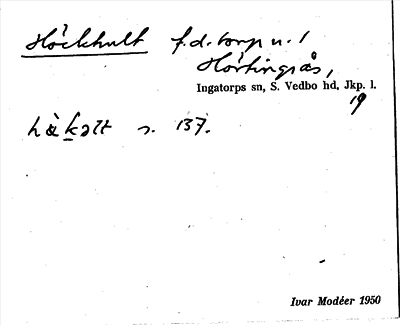 Höckhult f.d. torp u. 1
Hörtingsås,
Ingatorps sn, S. Vedbo hd, Jkp. l.
19
s. 137.
Ivar Modéer 1950